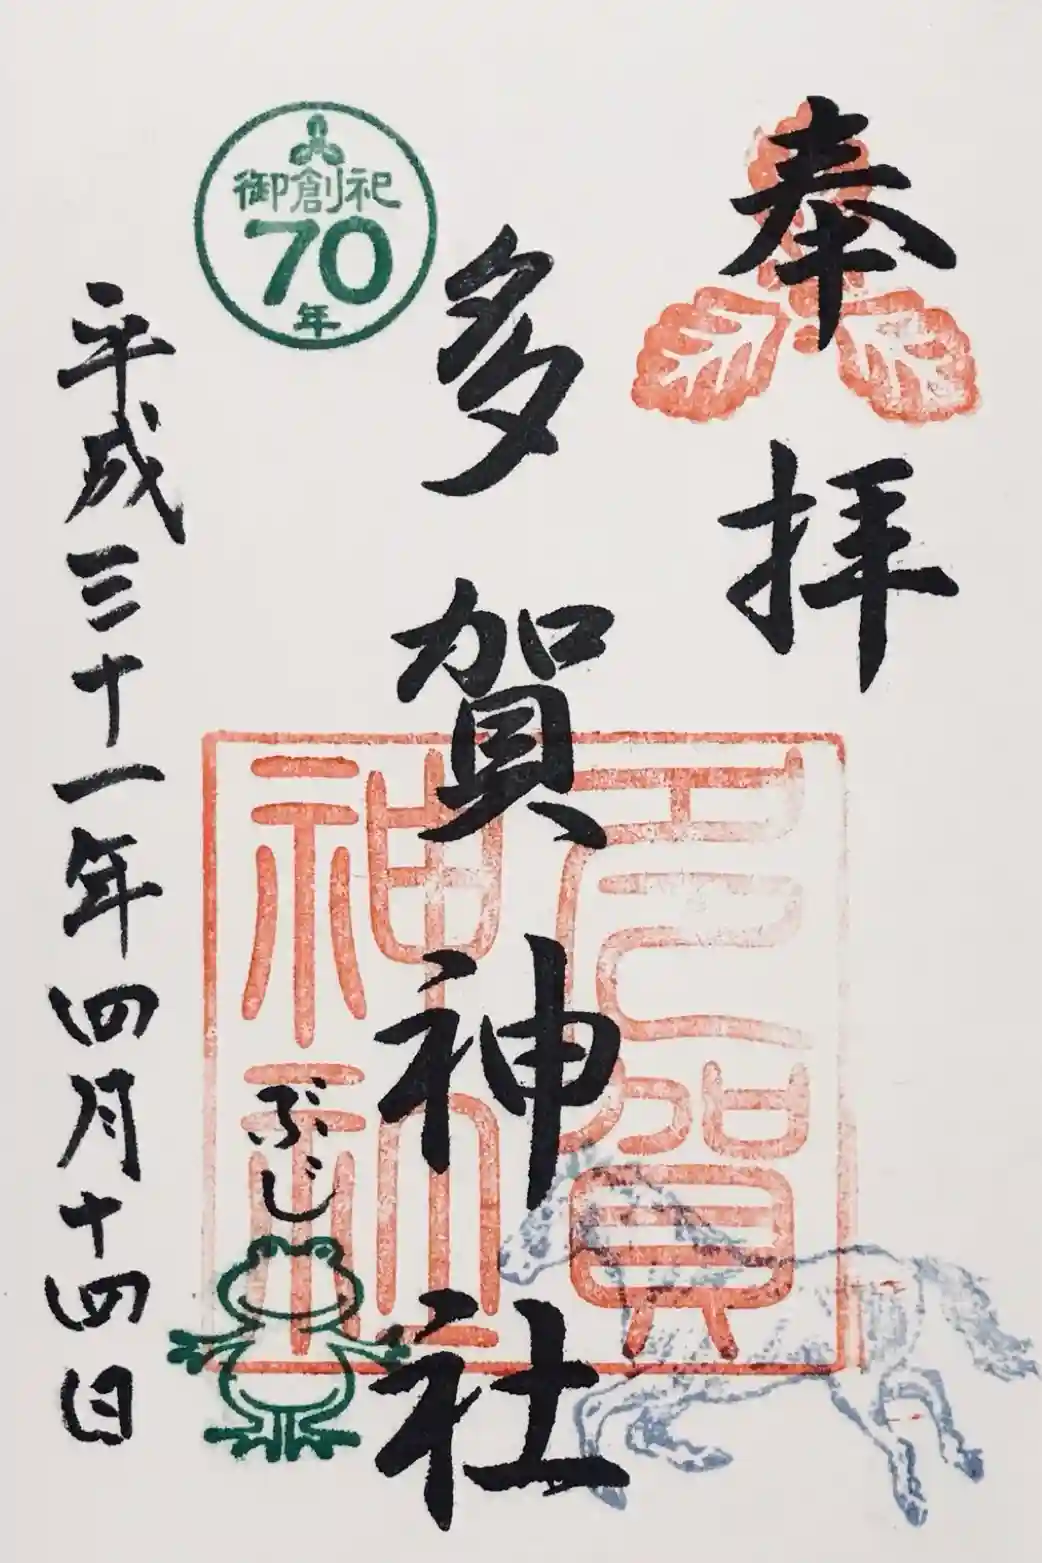 奉拝
多賀神社
多賀神社
御創祀
70
年
ぶじ
平成三十一年四月十四日